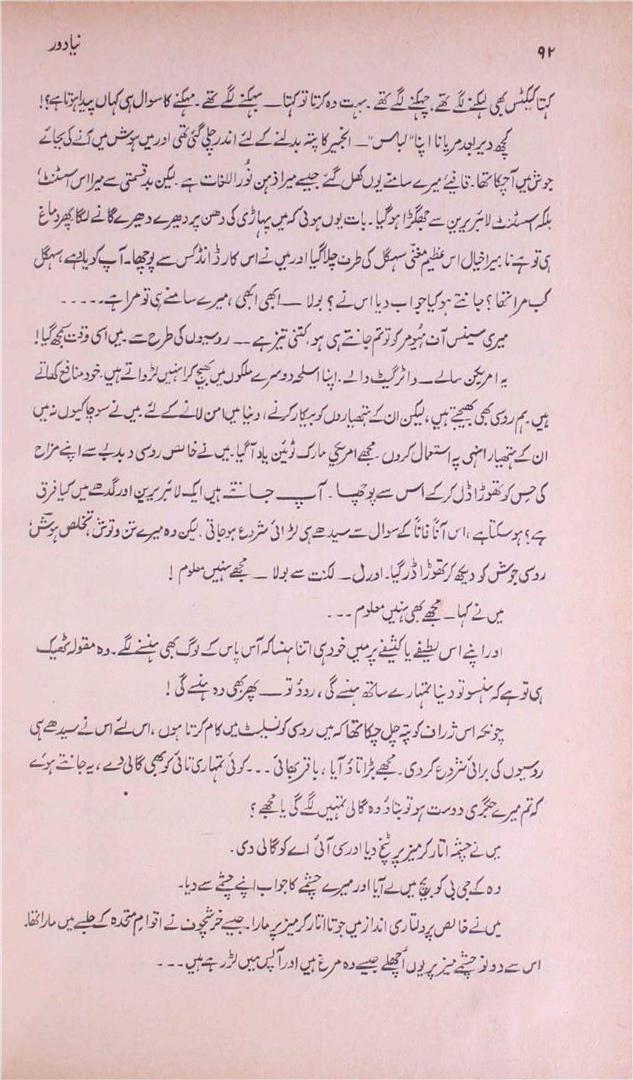 ۹۲
نیا دور
کہتا کیکٹس بھی لہکنے لگے تھے۔ چہکنے لگے تھے۔ بہت وہ کرتا تو کہتا — مہکنے لگے تھے۔ مہکنے کا سوال ہی کہاں پیدا ہوتا ہے؟!
کچھ دیر بعد مریانا اپنا "لباس" — انجیر کا پتہ بدلنے کے لئے اندر چلی گئی تھی اور میں ہوش میں آنے کی بجائے
جوش میں آ چکا تھا۔ قافیئے میرے سامنے یوں کھل گئے جیسے میرا ذہن نُور اللغات ہے۔ لیکن بدقسمتی سے میرا اس اسسٹنٹ،
بلکہ اسسٹنٹ لائبریرین سے جھگڑا ہو گیا۔ بات یوں ہوئی کہ میں پہاڑی کی دھن پر دھیرے دھیرے گانے لگا۔ پھر دماغ
ہی تو ہے نا۔ میرا خیال اس عظیم مغنّی سہگل کی طرف چلا گیا اور میں نے اس کارڈ انڈکس سے پوچھا۔ آپ کو یاد ہے، سہگل
کب مرا تھا؟ جانتے ہو کیا جواب دیا اس نے؟ بولا — ابھی ابھی، میرے سامنے ہی تو مرا ہے۔۔۔۔۔
میری سینس آف ہیومر کو تو تم جانتے ہی ہو، کتنی تیز ہے — روسیوں کی طرح سے۔ میں اسی وقت سمجھ گیا!
یہ امریکن سالے — واٹر گیٹ والے۔ اپنا اسلحہ دوسرے ملکوں میں بھیج کر انہیں لڑواتے ہیں۔ خود منافع کھاتے
ہیں۔ ہم روسی بھی بھیجتے ہیں، لیکن ان کے ہتھیاروں کو بیکار کرنے، دنیا میں امن لانے کے لئے۔ میں نے سوچا کیوں نہ میں
ان کے ہتھیار انہی پہ استعمال کروں۔ مجھے امریکی مارک ٹوئین یاد آ گیا۔ میں نے خالص روسی دبدبے سے اپنے مزاح
کی حِس کو تھوڑا ڈل کر کے اس سے پوچھا۔ آپ جانتے ہیں ایک لائبریرین اور گدھے میں کیا فرق
ہے؟ ہو سکتا ہے، اس آناً فاناً کے سوال سے سیدھے ہی لڑائی شروع ہو جاتی۔ لیکن وہ میرے تن و توش، تخلص ہوش،
روسی جوش کو دیکھ کر تھوڑا ڈر گیا۔ اور ل — لکنت سے بولا — مجھے نہیں معلوم!
میں نے کہا — مجھے بھی نہیں معلوم ۔۔۔
اور اپنے اس لطیفے یا کثیفے پر میں خود ہی اتنا ہنسا کہ آس پاس کے لوگ بھی ہنسنے لگے۔ وہ مقولہ ٹھیک
ہی تو ہے کہ ہنسو تو دنیا تمہارے ساتھ ہنسے گی، روؤ تو — پھر بھی وہ ہنسے گی!
چونکہ اس ژراف کو پتہ چل چکا تھا کہ میں روسی کونسلیٹ میں کام کرتا ہوں، اس لئے اس نے سیدھے ہی
روسیوں کی برائی شروع کر دی۔ مجھے بڑا تاؤ آیا، باقر بھائی ۔۔۔ کوئی تمہاری تائی کو بھی گالی دے، یہ جانتے ہوئے
کہ تم میرے جگری دوست ہو تو بتاؤ وہ گالی تمہیں لگے گی یا مجھے؟
میں نے چشمہ اتار کر میز پر پٹخ دیا اور سی آئی اے کو گالی دی۔
وہ کے جی بی کو بیچ میں لے آیا اور میرے چشمے کا جواب اپنے چشمے سے دیا۔
میں نے خالص پرولتاری انداز میں جوتا اتار کر میز پر مارا۔ جیسے خرشچوف نے اقوام متحدہ کے جلسے میں مارا تھا۔
اس سے دونو چشمے میز پر یوں اُچھلے جیسے وہ مرغ ہیں اور آپس میں لڑ رہے ہیں۔۔۔